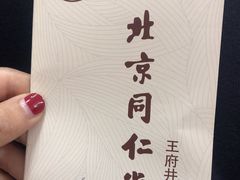 北京同仁堂
王府井